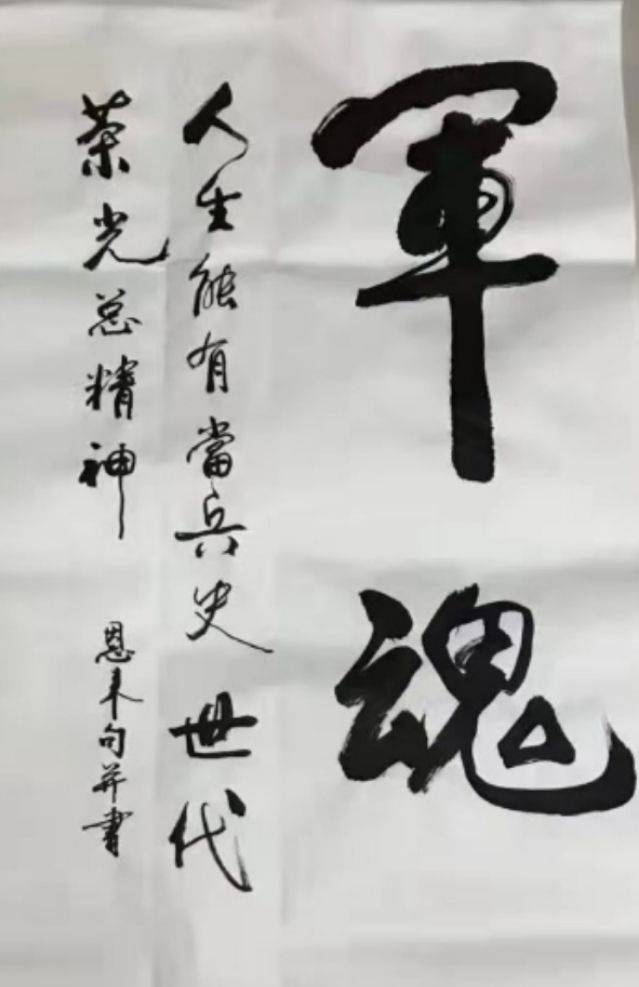 軍魂
人生能有當兵史世代
荣光总精神
恩来句并書